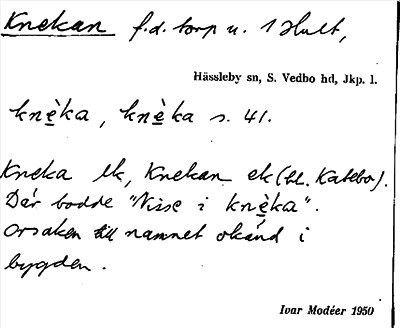 Knekan f.d. torp u. 1 Hult,
Hässleby sn, S. Vedbo hd, Jkp. l.
knè̱ka, knè̱ka s. 41.
Kneka lk, Knekan ek (bl. Kateba).
Där bodde "Nisse i knè̱ka".
Orsaken till namnet okänd i
bygden.
Ivar Modéer 1950